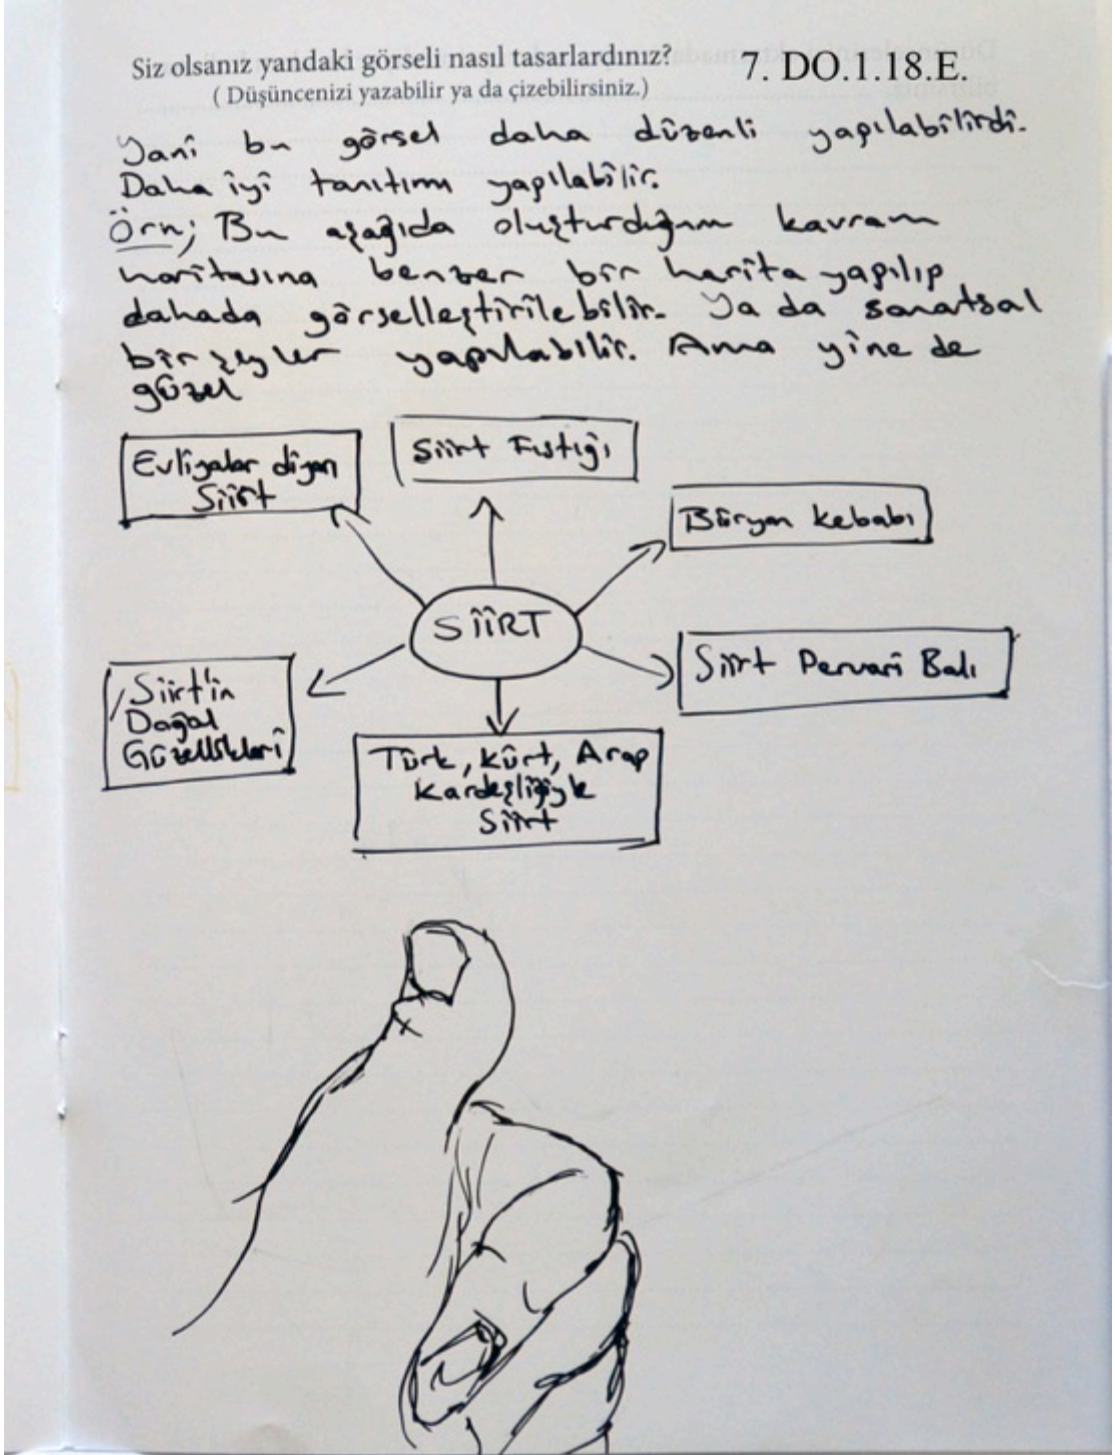 Siz olsanız yandaki görseli nasıl tasarlardınız?
7. DO.1.18.E.
( Düşüncenizi yazabilir ya da çizebilirsiniz.)
Yani bu görsel daha düzenli yapılabilirdi.
Daha iyi tanıtım yapılabilir.
Örn; Bu aşağıda oluşturduğum kavram
haritasına benzer bir harita yapılıp
dahada görselleştirilebilir. Ya da sanatsal
bir şeyler yapılabilir. Ama yine de
güzel
Evliyalar diyarı
Siirt
Siirt Fıstığı
Büryan kebabı
SİİRT
Siirt Pervari Balı
Siirt'in
Doğal
Güzellikleri
Türk, Kürt, Arap
Kardeşliğiyle
Siirt